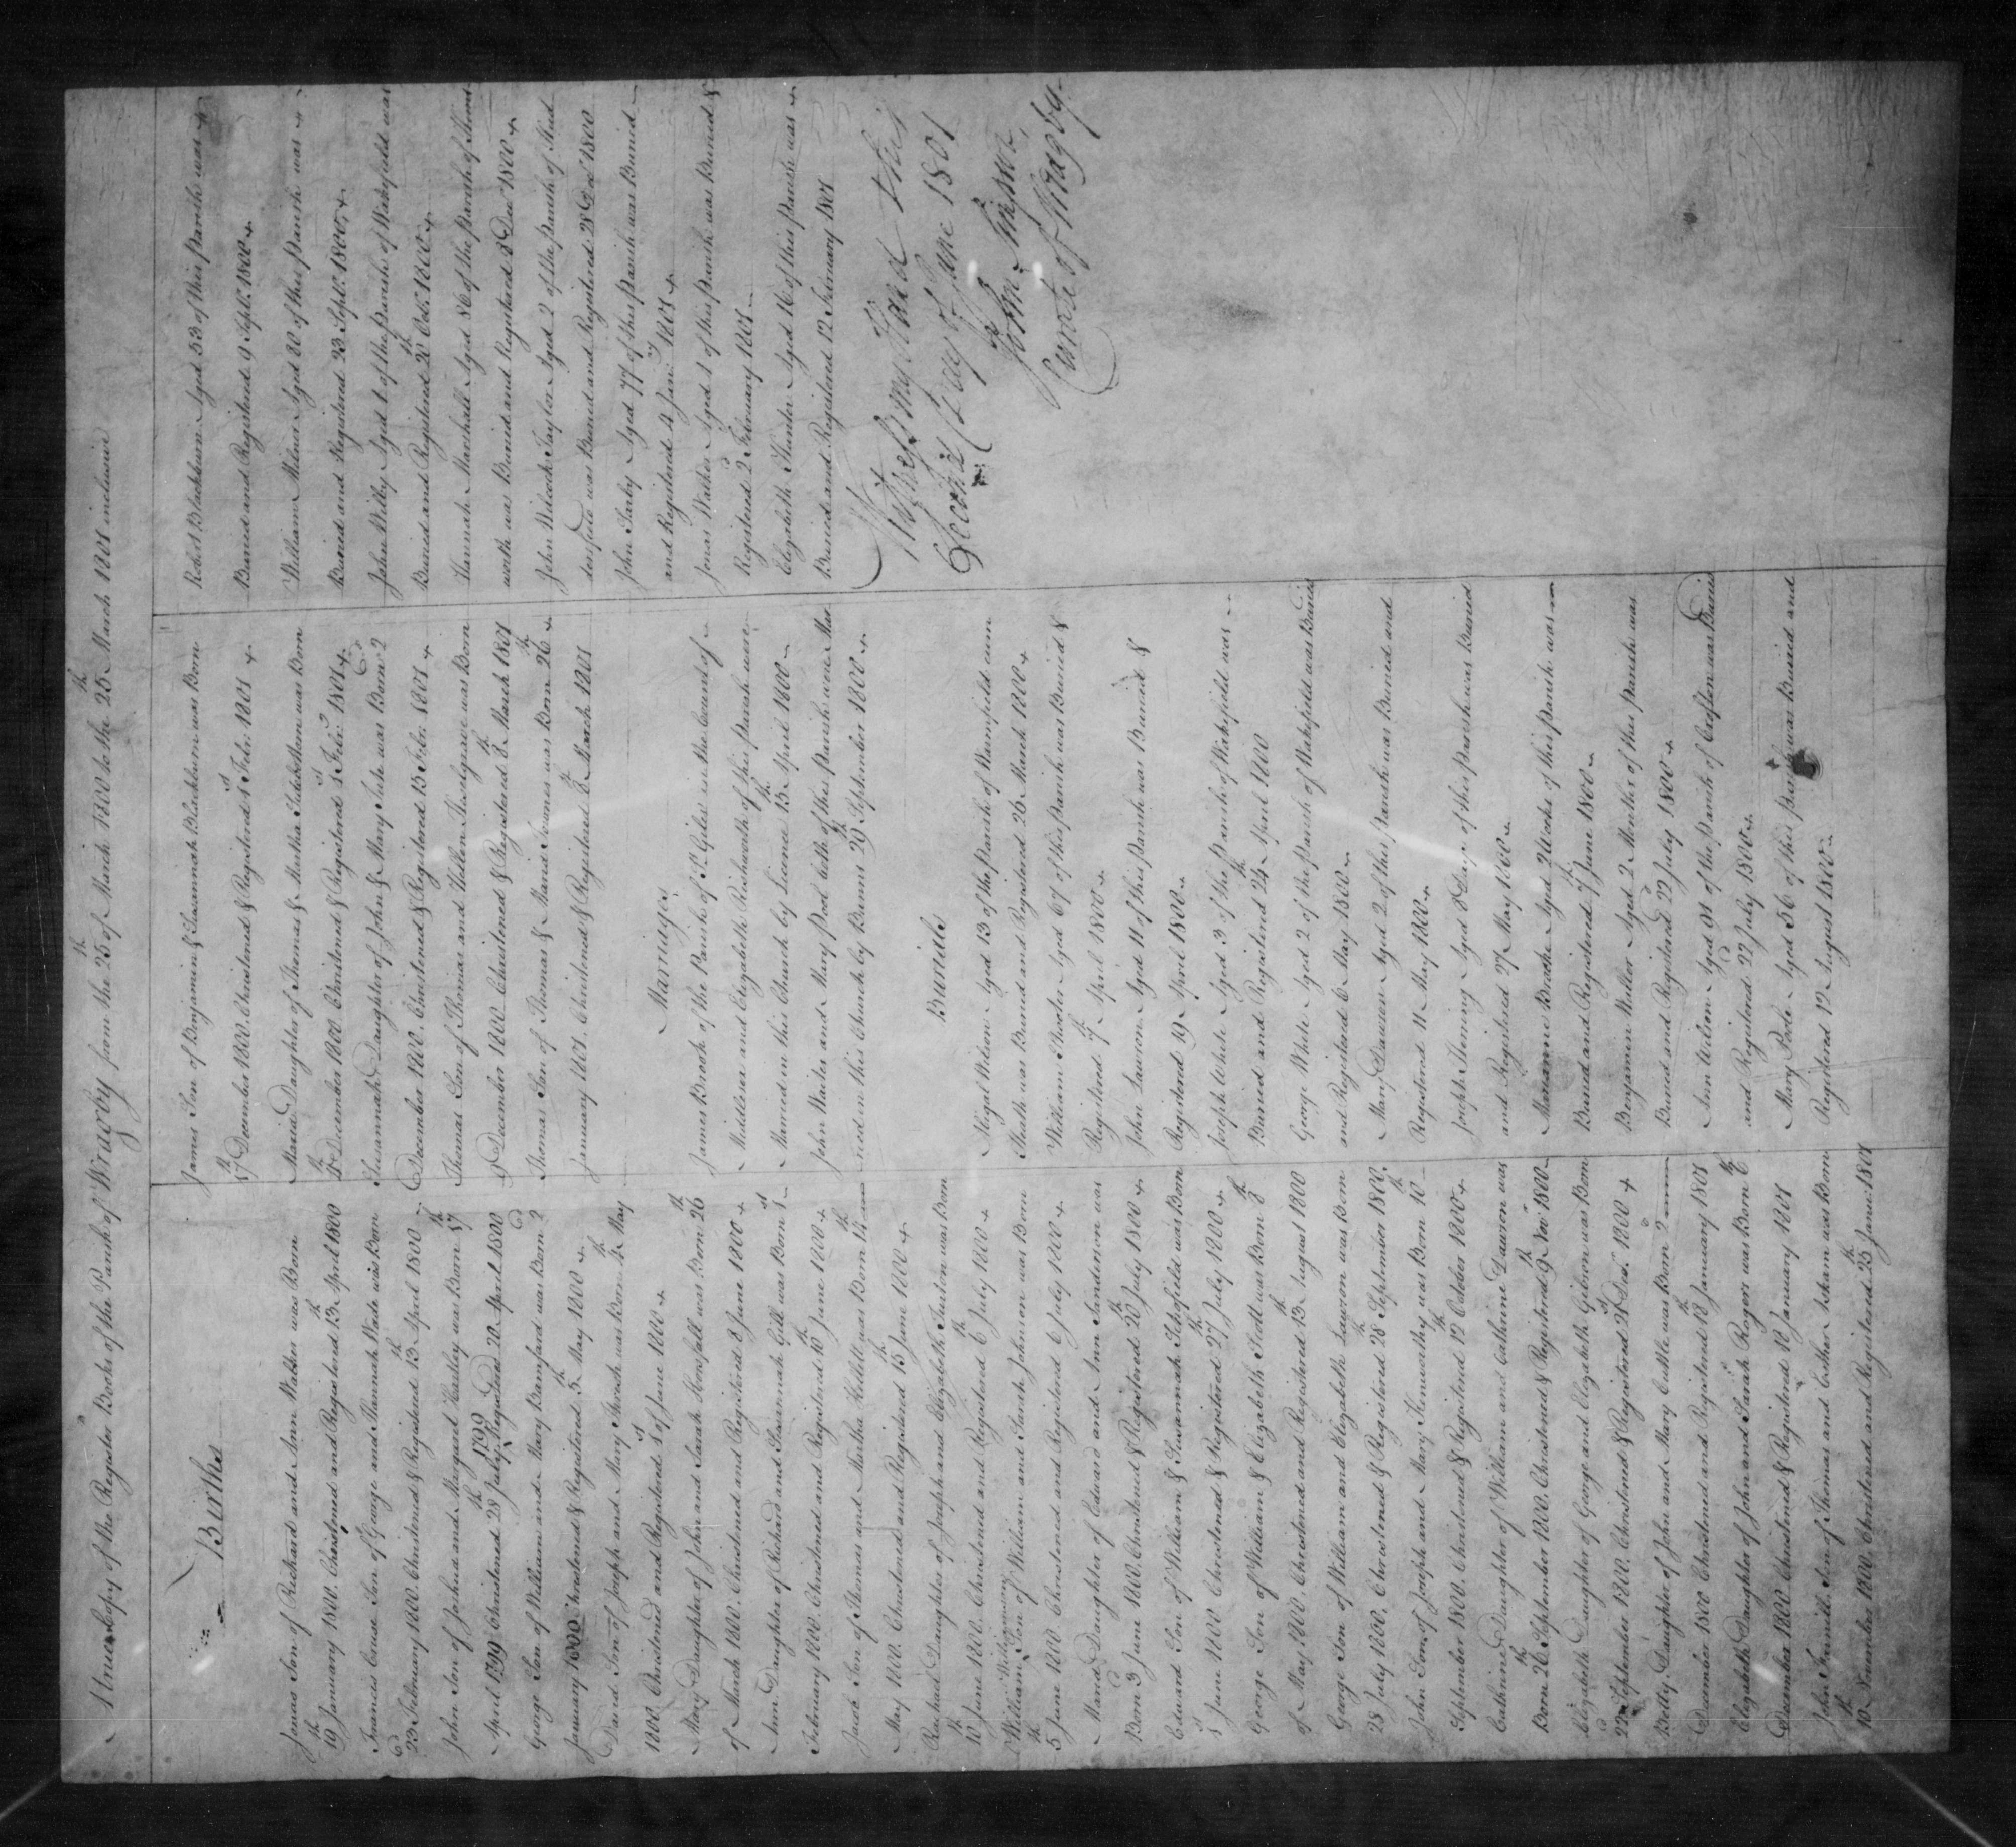 A true Copy of the Register Books of the Parish of Wragby from the 25th of March 1800 to the 25th March 1801 inclusive
Births
Jonas Son of Richard and Ann Walker was Born
19th January 1800. Christened and Registered 13th April 1800
Francis Cruse Son of George and Hannah Waite was Born
23d February 1800. Christened & Registered 13th April 1800
John Son of Joshua and Margaret Hartley was Born 17th
April 1799 Christened 28th July 1799 Registered 20 April 1800
George Son of William and Mary Bamford was Born 2d
January 1800 Christened & Registered 5th May 1800
David Son of Joseph and Mary Thrush was Born 4th May
1800 Christened and Registered 1st of June 1800
Mary Daughter of John and Sarah Horsfall was Born 26th
of March 1800. Christened and Registered 8 June 1800
Ann Daughter of Richard and Susannah Gill was Born 1st
February 1800. Christened and Registered 10th June 1800
Jacob Son of Thomas and Martha Hellett was Born 14th
May 1800. Christened and Registered 15th June 1800
Rachael Daughter of Joseph and Elizabeth Turton was Born
10th June 1800. Christened and Registered 6th July 1800
William Son of William and Sarah Johnson was Born
5th June 1800 Christened and Registered 6 July 1800
Maria Daughter of Edward and Ann Sanderson was
Born 3d June 1800. Christened & Registered 20th July 1800
Edward Son of William & Susannah Schofield was Born
1st June 1800 Christened & Registered 27th July 1800
George Son of William & Elizabeth Scott was Born 8th
of May 1800, Christened and Registered 13th August 1800
George Son of William and Elizabeth Lawson was Born
28 July 1800, Christened & Registered 28th September 1800.
John Son of Joseph and Mary Kenworthy was Born 10th
September 1800. Christened & Registered 12th October 1800
Cathrine Daughter of William and Cathrine Dawson was
Born 26th September 1800. Christened & Registered 9th Nov 1800
Elizabeth Daughter of George and Elizabeth Gibson was Born
22d September 1800. Christened & Registered 21st Decr 1800
Betty Daughter of John and Mary Cuttle was Born 2d
December 1800 Christened and Registered 18th January 1801
Elizabeth Daughter of John and Sarah Rogers was Born 6th
December 1800 Christened & Registered 18 January 1801
John Son of Thomas and Esther Askam was Born
10th November 1800. Christened and Registered 25th Janry 1801
James Son of Benjamin & Susannah Blackburn was Born
17th December 1800. Christened & Registered 1st Feb: 1801
Maria Daughter of Thomas & Martha was Born
December 1800. Christened & Registered 1st Feb: 1801
Susannah Daughter of John & Mary was Born 2d
December 1800. Christened & Registered 15 Feb: 1801
Thomas Son of Thomas and Hellen was Born
9 December 1800 Christened & Registered 8th March 1801
Thomas Son of Thomas & Maria was Born 26th
January 1801. Christened & Registered 8th March 1801
Marriages
James Brook of the Parish of St Giles in the County of
Middlesex and Elizabeth Rishworth of this Parish were
Married in this Church by Licence 15th April 1800
John Waites and Mary Pool both of this Parish were Mar
ried in this Church by Banns 29th September 1800
Burials
Abigal Wilson Aged 13 of the Parish of Warmfield cum
Heath was Buried and Registered 26 March 1800
William Shooter Aged 67 of this Parish was Buried &
Registered 7th April 1800
John Lawson Aged 11 of this Parish was Buried &
Registered 19 April 1800
Joseph White Aged 3 of the Parish of Wakefield was
Buried and Registered 24th April 1800
George White Aged 2 of the Parish of Wakefield was Buried
and Registered 6 May 1800
Mary Dawson Aged 2 of this Parish was Buried and
Registered 11 May 1800
Joseph Aged 8 Days of this Parish was Buried
and Registered 27 May 1800
Marianne Aged 2 Weeks of this Parish was
Buried and Registered 7th June 1800
Benjamin Waller Aged 2 Months of this Parish was
Buried and Registered 22d July 1800
Ann Aged 81 of the Parish of Crofton was Buried
and Registered 22d July 1800
Mary Poole Aged 56 of this Parish was Buried and
Registered 12 August 1800
Robert Blackburn Aged 53 of this Parish was
Buried and Registered 9 Septr 1800
William Milner Aged 80 of this Parish was
Buried and Registered 23 Septr 1800
John Wilby Aged 1 of the Parish of Wakefield was
Buried and Registered 20th Octr 1800
Hannah Marshall Aged 86 of the Parish of Hems
worth was Buried and Registered 28 Decr 1800
John Wilcock Taylor Aged 2 of the Parish of
was Buried and Registered 28 Decr 1800
John Aged 77 of this Parish was Buried
and Registered 4 Jany 1801
Jonas Walker Aged 1 of this Parish was Buried &
Registered 2d February 1801
Elizabeth Hunter Aged 16 of this Parish was
Buried and Registered 12 February 1801
Witness my Hand this
Second Day of June 1801
John Simpson
Curate of Wragby